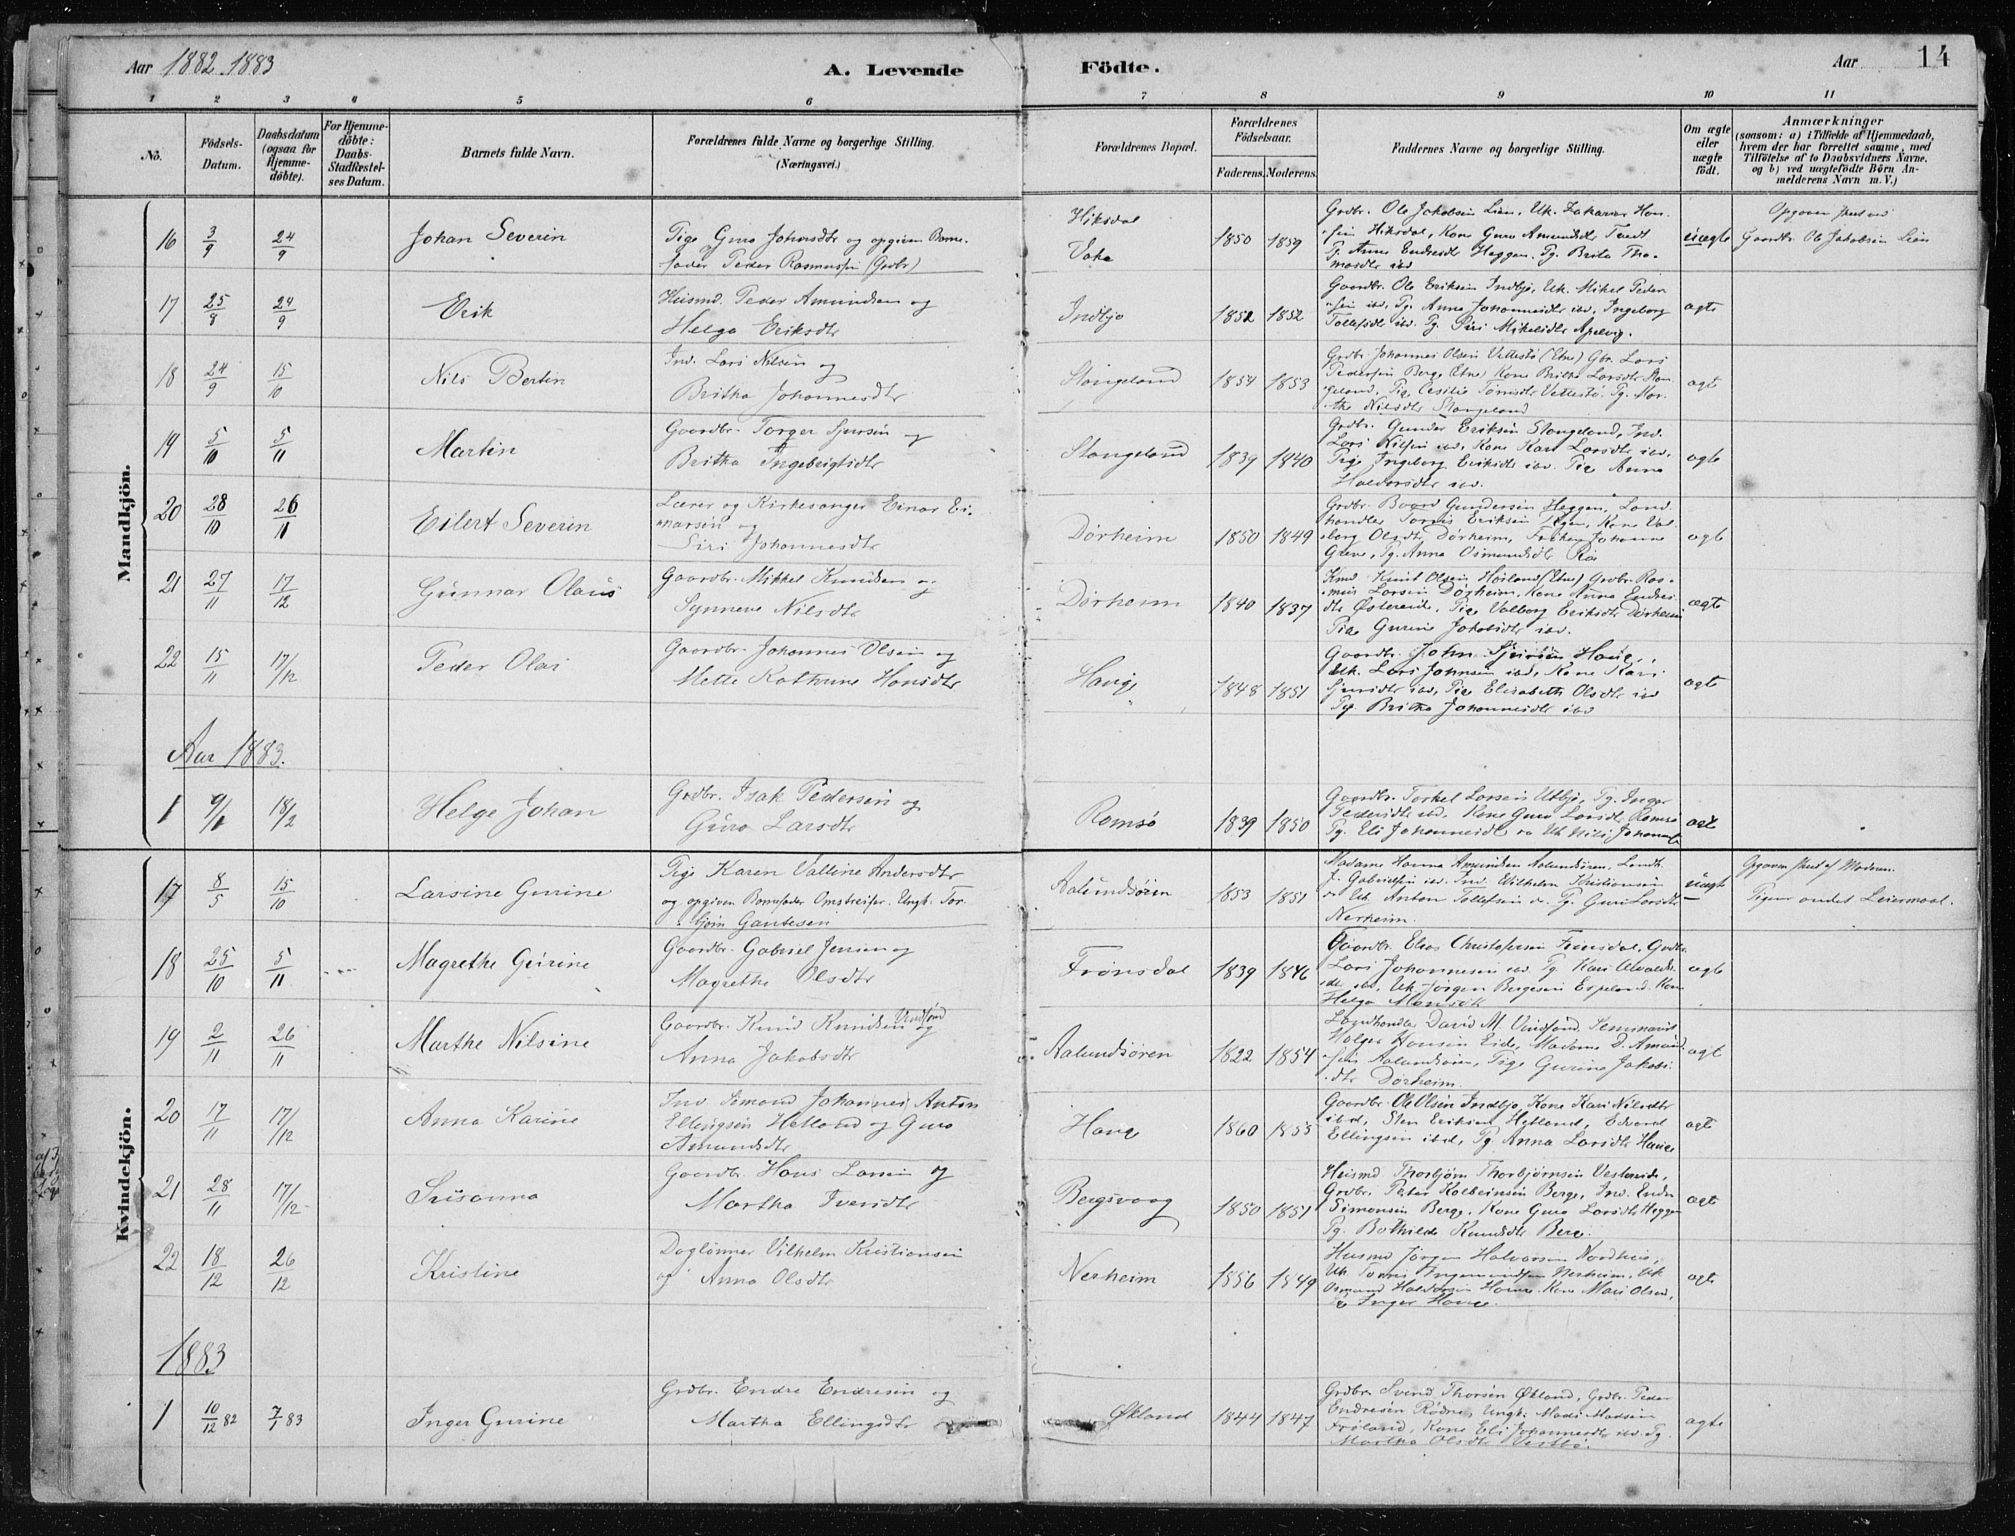 Aar 1882-1883
A. Levende
Födte.
Aar
14
1 2 3 4 5 6
7 8 9 10 11
No.
Födsels-Datum.
Daabsdatum (ogsaa for Hjemmedöbte).
For Hjemmedöbte: Daabs-Stadfæstelses Datum.
Barnets fulde Navn.
Forældrenes fulde Navne og borgerlige Stilling. (Næringsvei.)
Forældrenes Bopæl.
Forældrenes Födselsaar.
Faderens. Moderens.
Faddernes Navne og borgerlige Stilling.
Om ægte eiler uægte födt.
Anmærkninger
(saasom: a) i Tilfælde af Hjemmedaab,
hvem der har forrettet samme, med
Tilföielse af to Daabsvidners Navne.
og b) ved uægtefödte Börn An-
melderens Navn m. V.)
Mandkjön.
16 3/9 24/9 Johan Severin
Pige Guro Johnsdtr og opgiven Barne-
fader Peder Rasmussen (Grdbr)
Hiksdal
Vake
1850 1859
Grdbr. Ole Jakobsen Lien, Uk. Zakarias Han-
sen Hiksdal, Kone Guro Amundsdtr Tveit
Pg. Anne Endresdtr Heggen. Pg. Brita Tho-
masdtr ibd
uægte
Opgiven
Gaardbr. Ole Jakobsen Lien
17 25/8 24/9 Erik
Husmd. Peder Amundsen og
Helga Eriksdtr
Indbjo
1852 1852
Gaardbr. Ole Eriksen Indbjo, Uk. Mikel Peder
sen ibd, Pg. Anne Johannesdtr ibd, Ingeborg
Tollefsdtr ibd. Pg. Siri Mikelsdtr Apelvig.
ægte
18 24/9 15/10 Nils Bertin
Ind. Lars Nilsen og
Britha Johannesdtr
Stangeland
1854 1853
Grdbr. Johannes Olsen Vettestø (Etne) Gbr. Lars
Pedersen Berge (Etne) Kone Britha Larsdtr Stan
geland, Pige Cecilie Tørrisdtr Vettestø. Pg. Mar-
the Nilsdtr Stangeland
ægte
19 5/10 5/11 Martin
Gaardbr. Torger Sjursen og
Britha Ingebrigtsdtr
Stangeland
1839 1840
Grdbr. Gunder Eriksen Stangeland, Ind.
Lars Nilsen ibd, Kone Kari Larsdtr ibd.
Pige Ingeborg Eriksdtr ibd. Pige Anna
Haldorsdtr ibd.
ægte
20 28/10 26/11 Eilert Severin
Lærer og Kirkesanger Einar Ei-
narsen og
Siri Johannesdtr
Dørheim
1850 1849
Grdbr. Baard Gundersen Heggen, Land
handler Tørris Eriksen Tegen, Kone Val
borg Olsdtr Dørheim, Frøken Johanne
Greve, Pg. Anna Osmundsdtr Røe
ægte
21 27/11 17/12 Gunnar Olaus
Gaardbr. Mikkel Knudsen og
Synneve Nilsdtr
Dørheim
1840 1837
Knud Olsen Høiland (Etne) Grdbr. Ras-
mus Larsen Dørheim, Kone Anna Endres
dtr Østereide, Pige Valborg Eriksdtr Dørheim
Pige Gurine Jakobsdtr ibd.
ægte
22 15/11 17/12 Peder Olai
Gaardbr. Johannes Olsen og
Mette Kathrine Hansdtr
Hauge
1848 1851
Gaardbr. John Sjursen Hauge,
Uk. Lars Johnsen ibd, Kone Kari
Sjursdtr ibd, Pige Elisabeth Olsdtr ibd
Pg. Britha Johannesdtr ibd
ægte
Aar 1883.
1 9/1 18/2 Helge Johan
Grdbr. Isak Pedersen og
Guro Larsdtr
Romsø
1839 1850
Gaardbr. Torkel Larsen Utbjo, Pg. Inger
Pedersdtr ibd, Kone Guro Larsdtr Romsø
Pg. Eli Johannesdtr Uk Nils Johannes
ægte
Kvindekjön.
17 8/5 15/10 Larsine Gurine
Pige Karen Valline Andersdtr
og opgiven Barnefader Omstreifer. Ungk. Tor-
bjørn Gautesen
Aalundsøren
1853 1851
Madame Hanna Amundsen Aalundsøren, Landh.
J. Gabrielsen ibd. Ind. Wilhelm Kristiansen
Uk. Anton Tollefsen Pg. Guri Larsdtr
Nerheim.
uægte
Opgiven af Moderen.
Pigens andet Leiermaal.
18 25/10 5/11 Magrethe Gurine
Gaardbr. Gabriel Jensen og
Magrethe Olsdtr
Frønsdal
1839 1846
Gaardbr. Elias Christofersen Frønsdal, Grdbr
Lars Johannesen ibd. Pg. Kari
dtr ibd. Uk Jørgen Bergesen Espeland. Kone
Helga
ægte
19 2/11 26/11 Marthe Nilsine
Gaardbr. Knud Knudsen Vindfond og
Anna Jakobsdtr
Aalundsøren
1822 1854
Landhandler David M. Vindfond, Seminarist
Holger Hansen Eide, Madame D. Amund-
sen Aalundsøren, Pige Gurine Jakobs-
dtr Dørheim.
ægte
20 17/11 17/12 Anna Karine
Ind. Sømand Johannes Anton
Ellingsen Hetland og Guro
Amundsdtr
Hauge
1860 1855
Gaardbr. Ole Olsen Indbjo, Kone Kari Nilsdtr
ibd, Sten Eriksen Hetland, Edvard
Ellingsen ibd, Pg. Anna Larsdtr Hauge
ægte
21 28/11 17/12 Susanna
Gaardbr Hans Larsen og
Martha Iversdtr
Bergsvaag
1850 1851
Husmd Thorbjørn Thorbjørnsen Vestereide,
Grdbr. Peter Kolbeinsen Berge, Ind. Endre
Simonsen Berge. Kone Guro Larsdtr Heggen
Pg. Bothilde Knudsdtr Berge.
ægte
22 18/12 26/12 Kristine
Daglønner Vilhelm Kristiansen
og Anna Olsdtr
Nerheim
1856 1849
Husmd Jørgen Halvorsen Nordhus,
Uk Tørris Ingemundsen Nerheim, Uk
Osmund Haldorsen Hauge. Kone Mari Olsd,
Inger Hauge.
ægte
1883
1 10/12 82 7/1 83 Inger Gurine
Grdbr. Endre Endresen og
Martha Ellingsdtr
Økland
1844 1847
Grdbr. Svend Thorsen Økland, Grdbr. Peder
Endresen Rødne, Ungk. Mads Madsen
Frøland, Kone Eli Johannesdtr ibd. Pg.
Martha Olsdtr Vestbø.
ægte